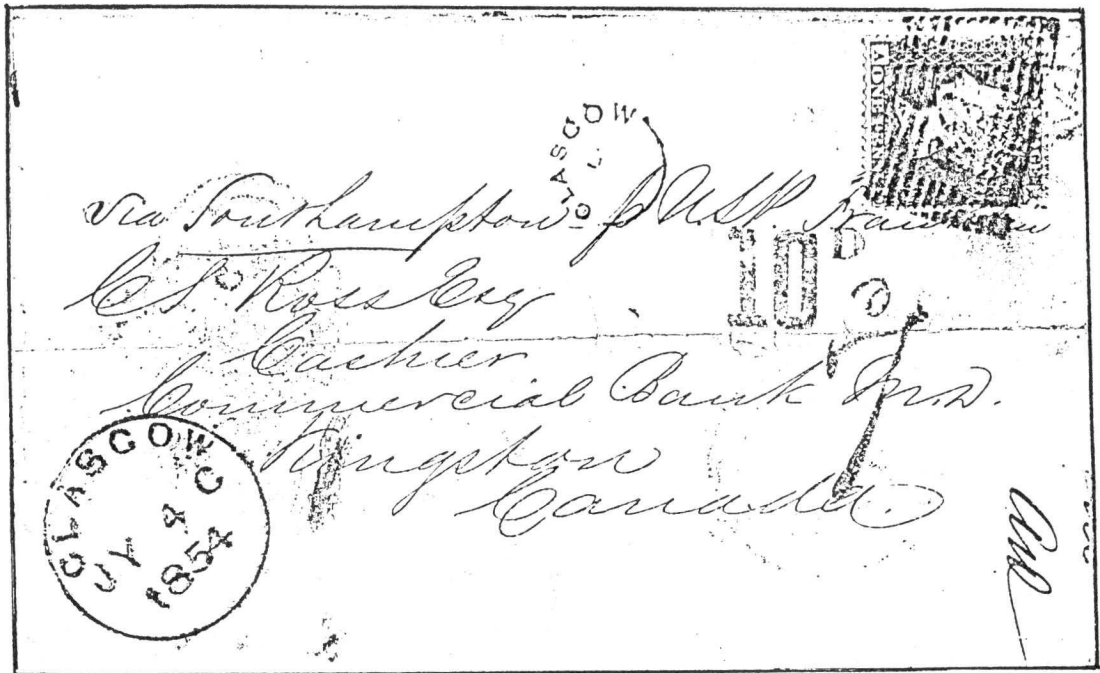 GLASGOW
L
via Southampton p USP
C S Ross Esq
Cashier
Commercial Bank M.D.
Kingston
Canada
10
GLASGOW
C
JY 4
1854